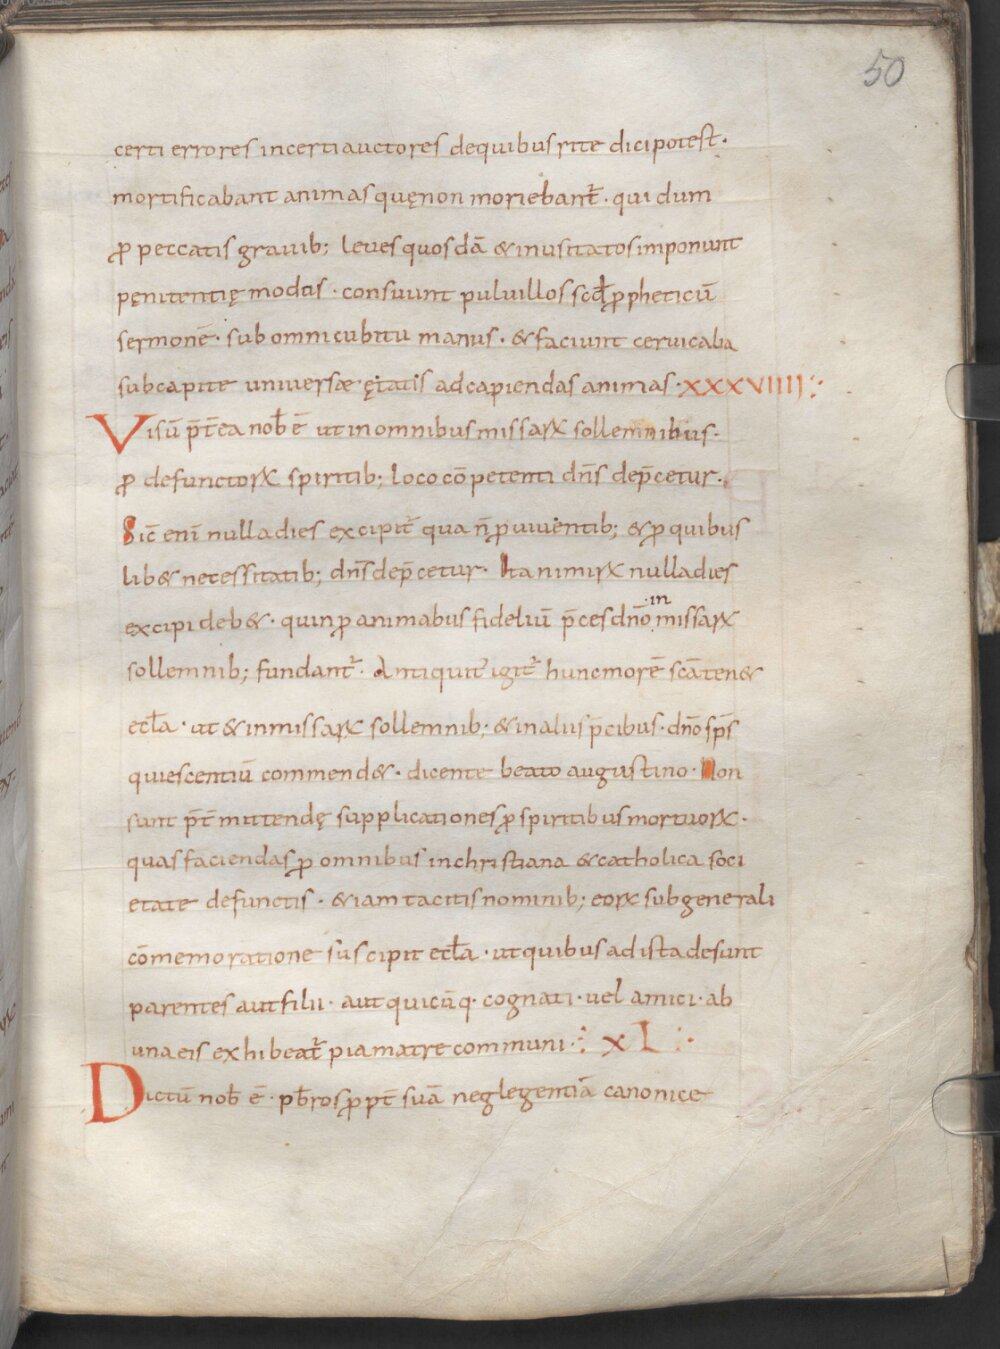 50
certi errores incerti auctores de quibus rite dici potest·
mortificabant animas quę non moriebant᷒· qui dum
ꝓ peccatis grauib; leues quosdā & inusitatos imponunt
pęnitentię modos· consuunt puluillos scdꝫ ꝓpheticū
sermonē· sub omni cubitu manus· & faciunt ceruicalia
sub capite uniuersæ ętatis ad capiendas animas· XXXVIIII
Visū p̄t̄ea nob̄ ē ut in omnibus missaꝝ sollemnibus·
ꝓ defunctoꝝ spiritib; loco cōpetenti dn̄s dep̄cetur·
Sic̄ enī nulla dies excipit᷒ qua n̄ ꝓ uiuentib; & ꝓ quibus
lib& necessitatib; dn̄s dep̄cetur· Ita nimiꝝ nulla dies
excipi deb&· quin ꝓ animabus fideliū p̄ces dn̄o ·in missaꝝ
sollemnib; fundant᷒· Antiquit᷒ igit᷒ hunc morē sc̄a ten&
eccl̄a· ut & in missaꝝ sollemnib; & in aliis p̄cibus· dn̄o sp̄s
quiescentiū commend&· dicente beato augustino· Non
sunt p̄t̄mittendę supplicationes ꝓ spiritibus mortuoꝝ·
quas faciendas ꝓ omnibus in christiana & catholica soci
etate defunctis· &iam tacitis nominib; eoꝝ sub generali
cōmemoratione suscipit eccl̄a· ut quibus ad ista desunt
parentes aut filii· aut quicūq· cognati· uel amici· ab
una eis exhibeat᷒ pia matre communi· XL
Dictū nob̄ ē· pb̄ros ꝓpt̄ suā neglegentiā canonice